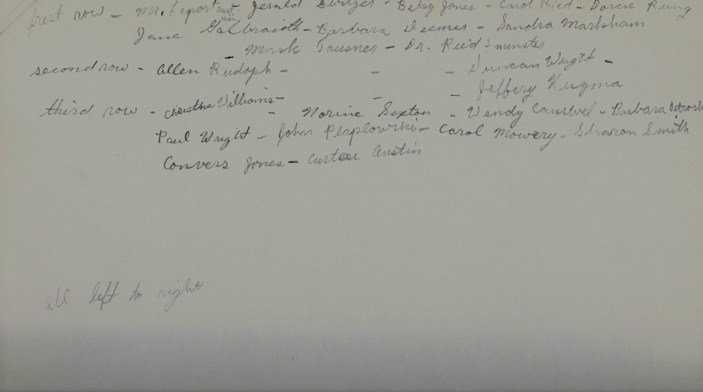 first row - Mr. Leporton - Jerald Swizes - Betsy Jones - Carol Ried - Dorcie Rung
Jane Galbraith - Barbara Deemes - Sandra Markham
- Mark Tausnes - Dr. Reid - minister
second row - Allen Rudolph - - - Duncan Wright -
- - Jeffery Kugma
third row - Christine Williams - - Norine Sexton - Wendy Causwel - Barbara
Paul Wright - John - Carol Mowery - Sharon Smith
Convers Jones - Curtese Austin
all left to right